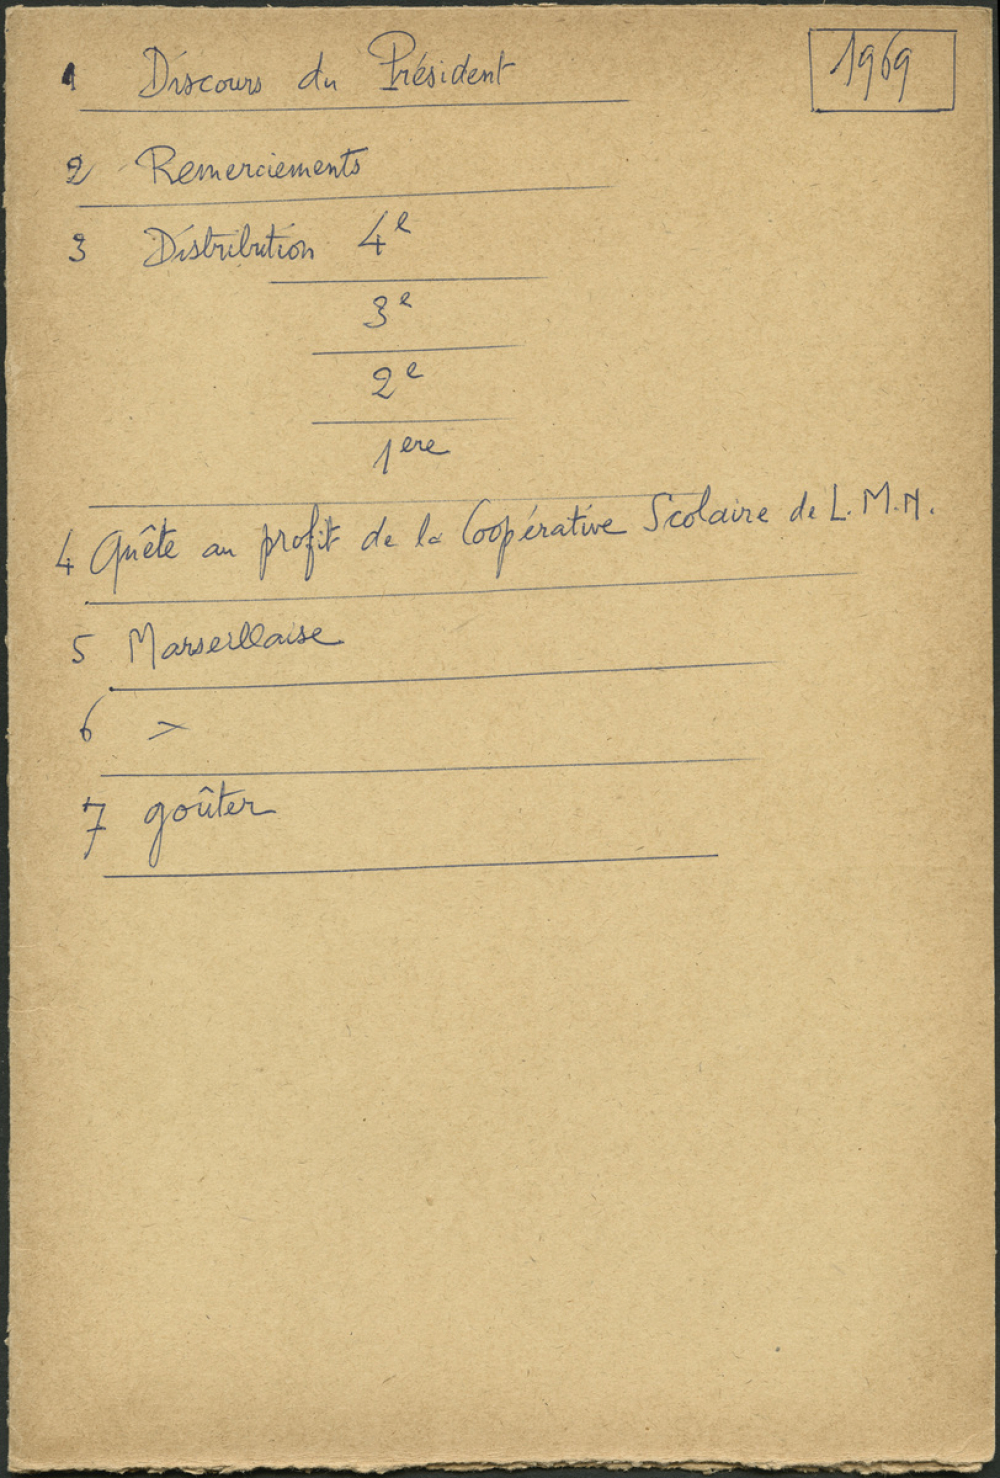 1969
1 Discours du Président
2 Remerciements
3 Distribution 4e
3e
2e
1ere
4 Quête au profit de la Coopérative Scolaire de L.M.N.
5 Marseillaise
6 >
7 goûter